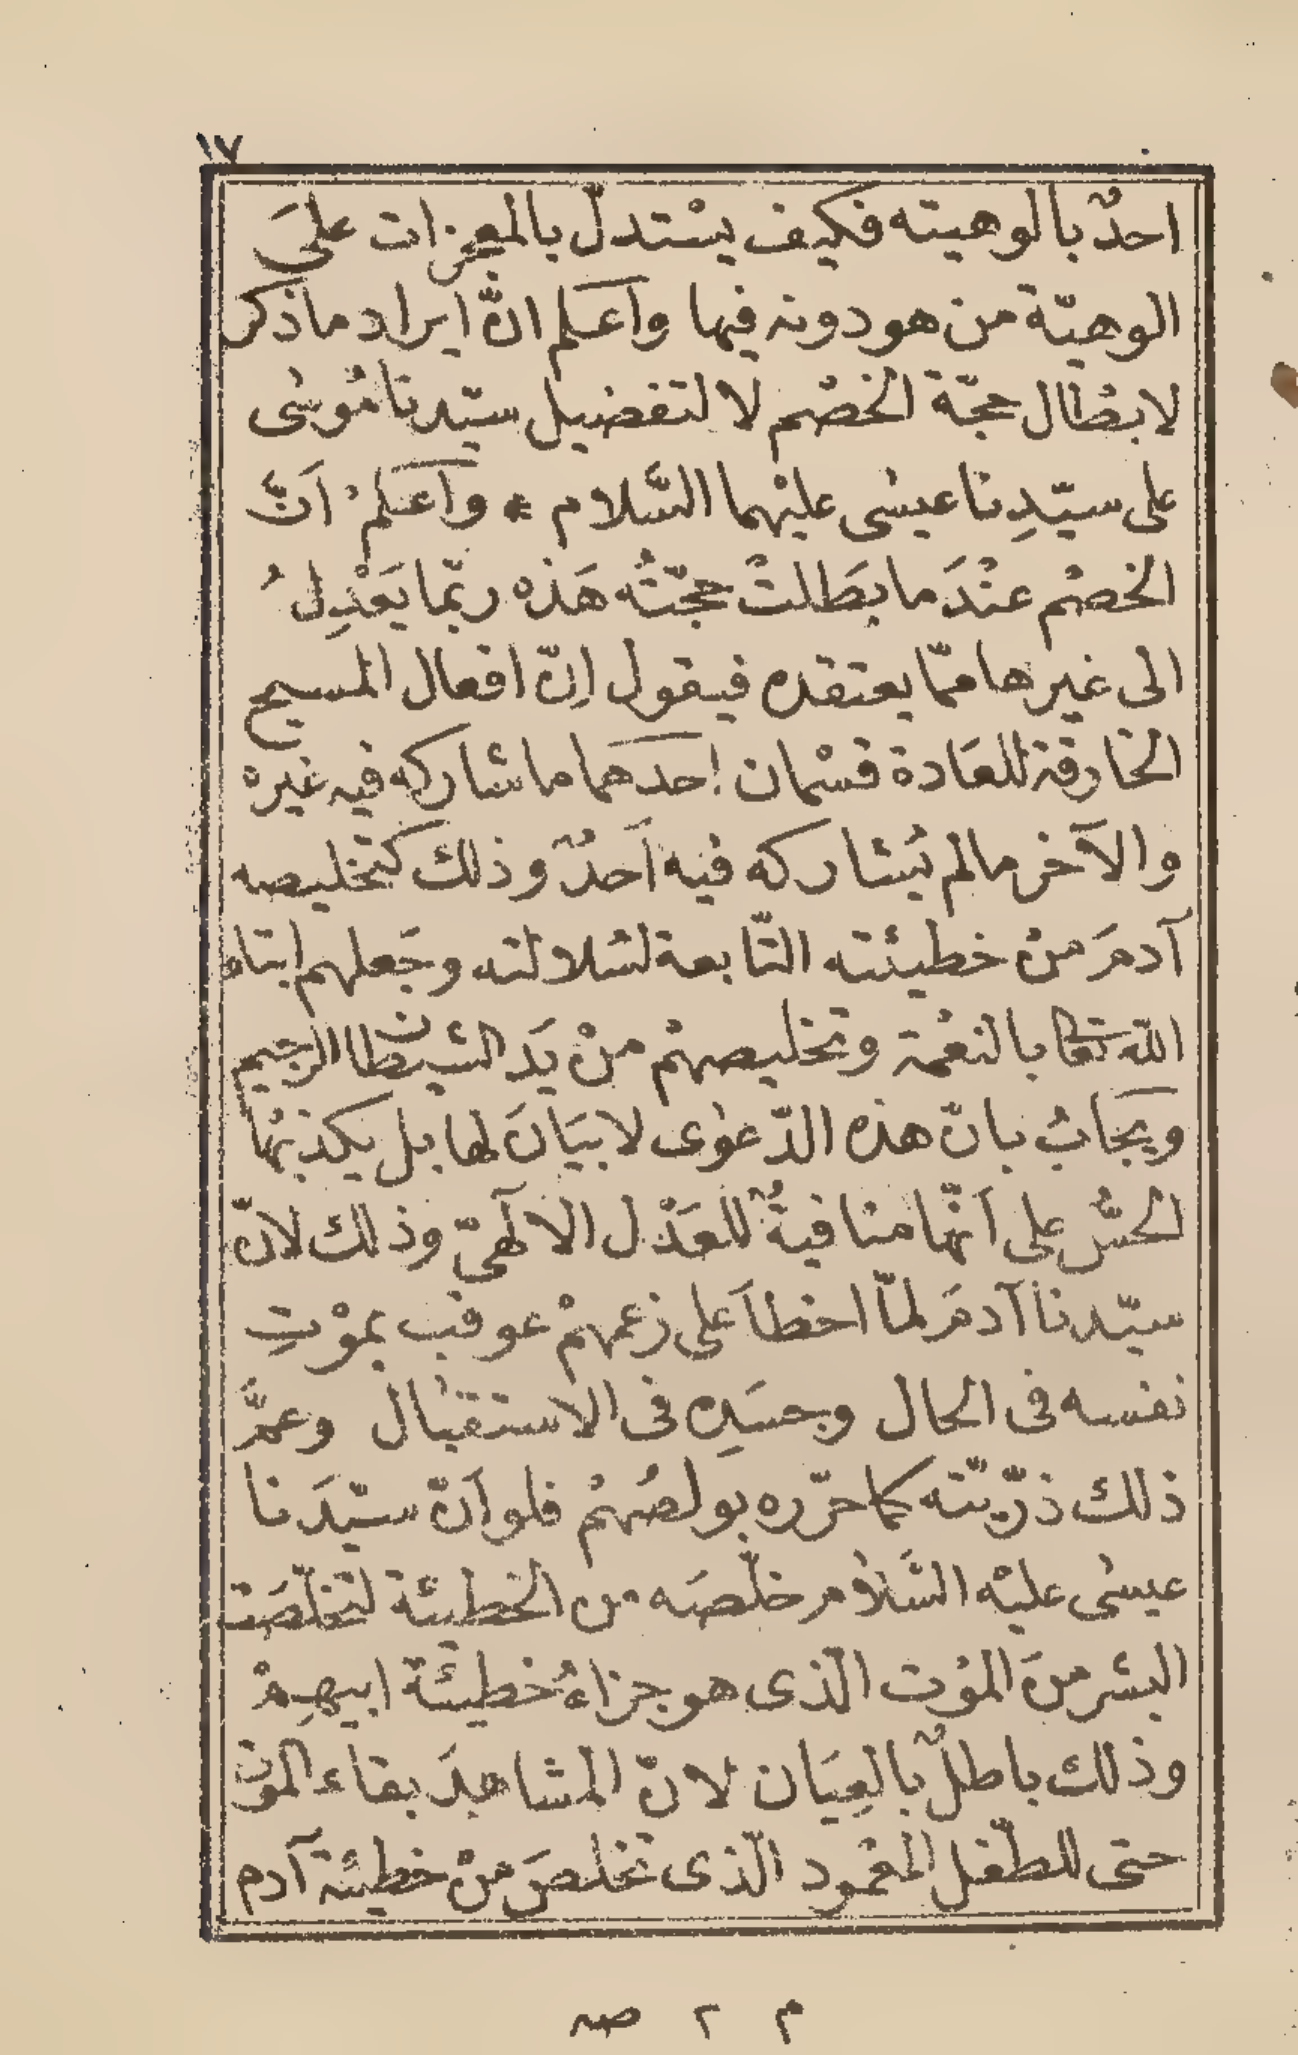 ١٧
احدٌ بالوهيته فكيف يسْتدلّ بالمعجزات علىَ
الوهيّة من هو دونه فيها واَعلم انّ ايراد ما ذكر
لابطْال حجّة الخصْم لا لتفضيل سيّدنا مُوسٰى
على سيّدِنا عيسٰى عليْهما السَّلام * واَعلمْ اَنَّ
الخصْم عنْدَ ما بطَلتْ حجّتُه هَذه ربّما يَعْدِلُ
الى غيرها ممّا يعتقده فيقول اِنّ افعال المسيح
الخارقة للعَادة قسْمان احدهما ما شاركه فيه غيره
والآخر ما لم يُشاركه فيْه اَحدٌ وذلك كتخليصه
آدمَ منْ خطيئته التّابعة لسُلالته وجَعلهم ابناء
اللّه تعٰا بالنعْمة وتخليصهمْ منْ يَد الشيطان الرجيم
ويجَابُ بانّ هذه الدّعوٰى لا بيَانَ لها بل يكذبُها
الحسُّ على اَنّها منافيةٌ للعَدْل الالٓهىّ وذلك لانّ
سيّدنا آدمَ لمّا اخطاَ على زعمهمْ عوقب بموْتِ
نفسه فى الحال وجسَدِه فى الاستقبال وعمَّ
ذلك ذرّيّته كما حرّره بولصُهمْ فلو اَنّ سيّدَنا
عيسٰى عليْه السَّلام خلّصَه من الخطيئة لتخلّصَت
البشر منَ الموْت الّذى هو جزاءُ خطيئَة ابيهِمْ
وذلك باطلٌ بالعِيَان لانّ المشاهدَ بقاء الموت
حتى للطّفل المعْمود الّذى تخلصَ منْ خطيئة آدم
م ٢ صه